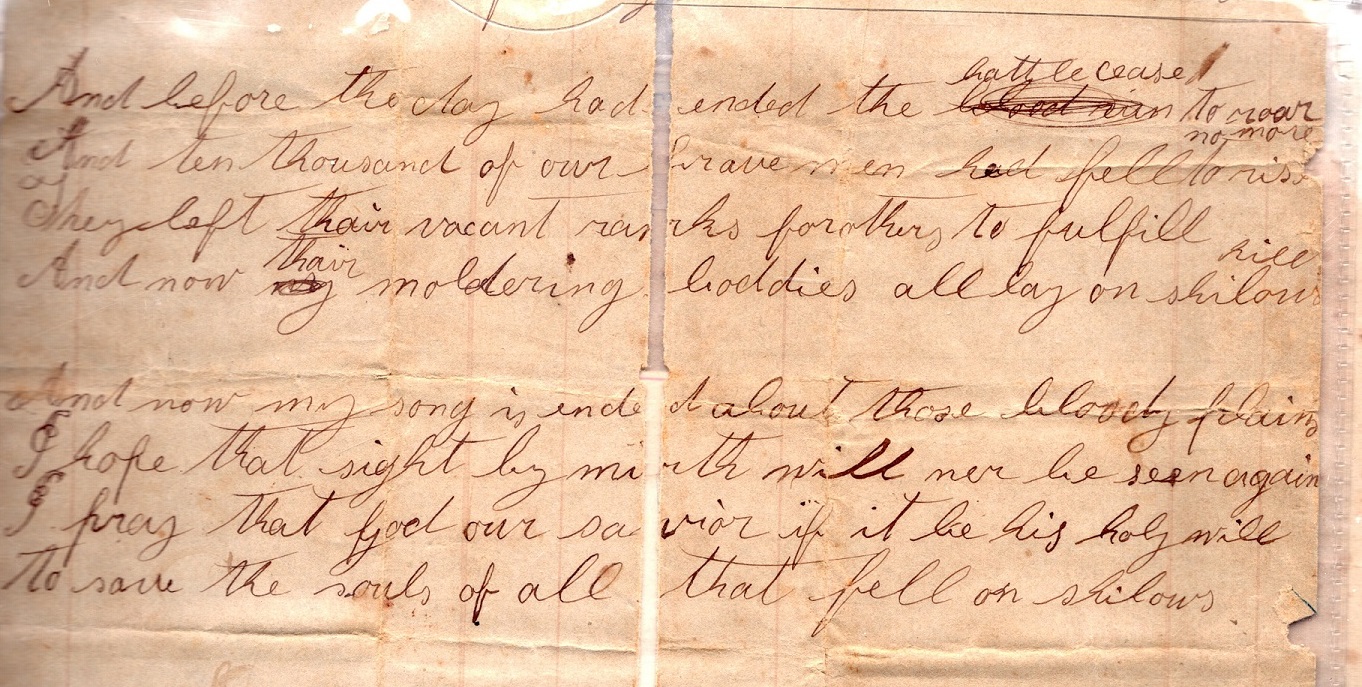 battle cease
And before the day had ended the blood run to roar
no more
And ten thousand of our brave men had fell to rise
They left thair vacant ranks for others to fulfill
thair hill
And now my moldering boddies all lay on shilows
And now my song is ended about those bloody plains
I hope that sight by mirth will ner be seen again
I pray that god our savior if it be his holy will
to save the souls of all that fell on shilows